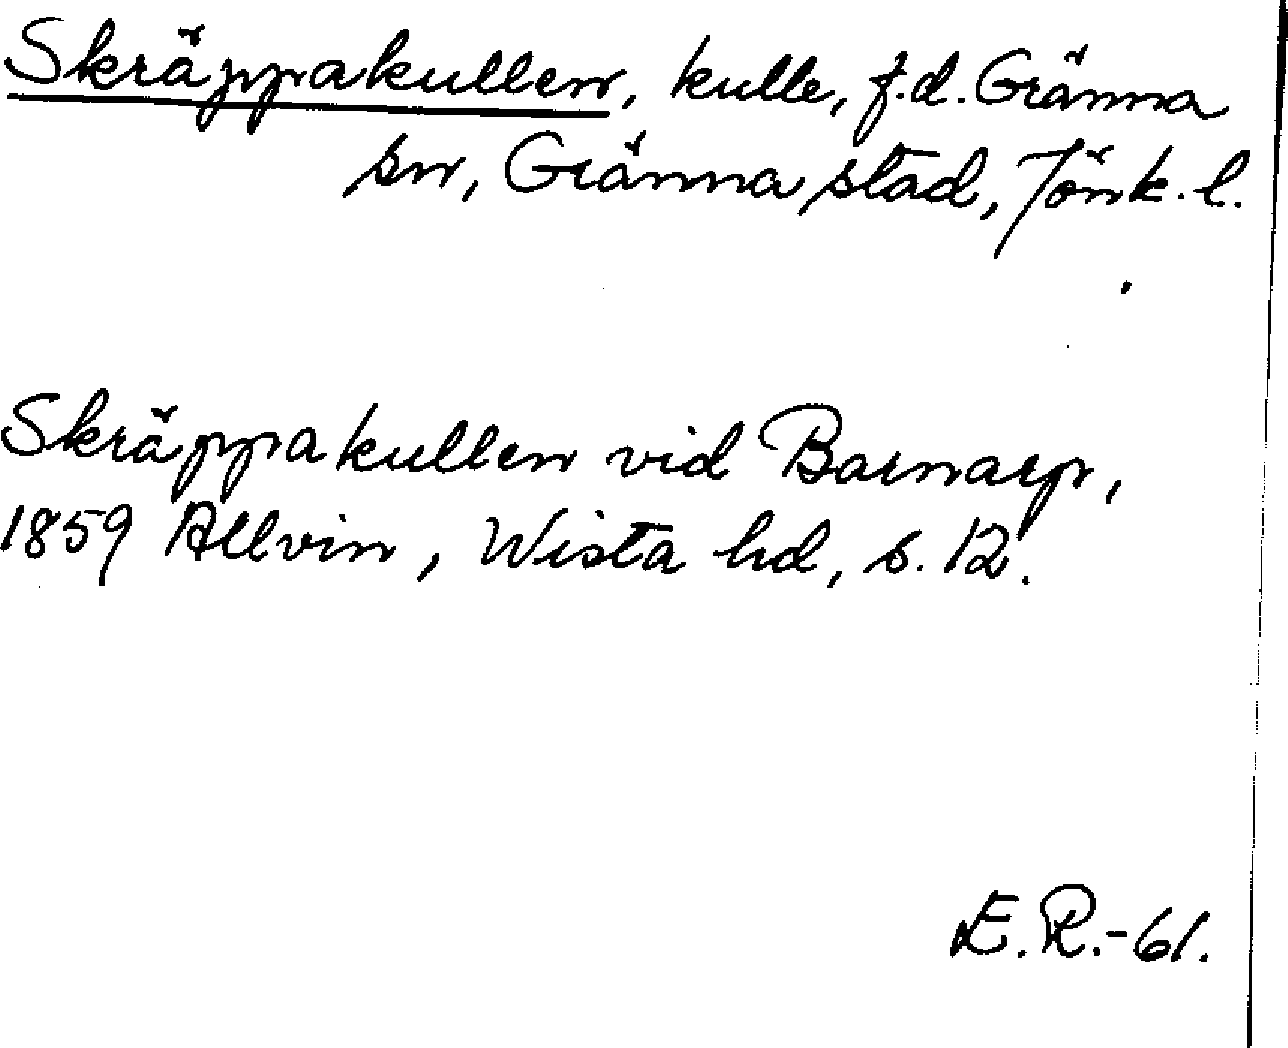 Skräppakullen, kulle, f.d. Gränna
sn, Gränna stad, Jönk. l.
Skräppakullen vid Barnarp,
1859 Allvin, Wista hd, s. 12.
E. R. -61.